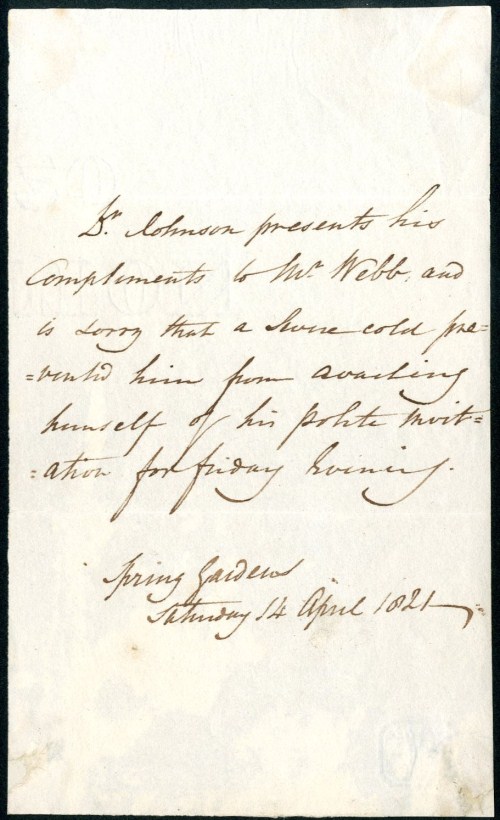 Dr. Johnson presents his
Compliments to Mr Webb, and
is sorry that a severe cold pre=
=vented him from availing
himself of his polite invit=
=ation for friday Evening.
Spring Gardens
Saturday 14 April 1821